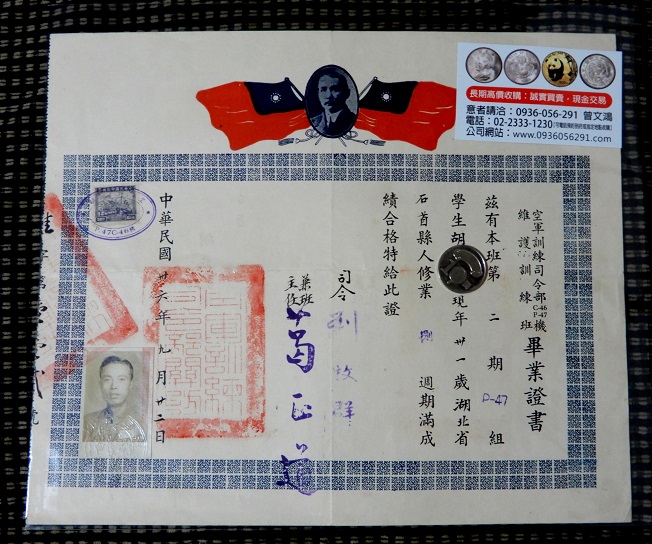 長期高價收購：誠實買賣，現金交易
意者請洽：0936-056-291 曾文鴻
電話：02-2333-1230
公司網站：www.0936056291.com
空軍訓練司令部C-46 P-47機
維護訓練班
畢業證書
茲有本班第二期P-47組
學生胡 現年卅一歲湖北省
石首縣人修業 捌 週期滿成
績合格特給此證
司令 劉牧群
兼班主任
中華民國卅六年九月廿二日
P-47C-46機